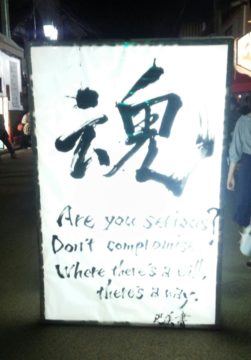 魂
Are you serious?
Don't compromise!
Where there's a will,
there's a way.